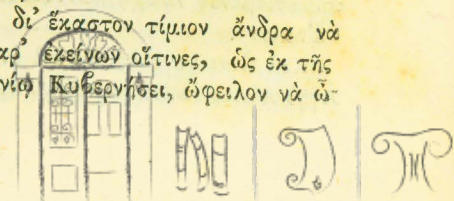 δι’ ἕκαστον τίμιον ἄνδρα νὰ
ἐκείνων οἵτινες, ὡς ἐκ τῆς
Κυβερνήσει, ὤφειλον νὰ ὠ-